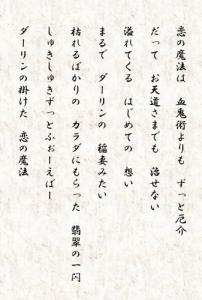 恋の魔法は　血鬼術よりも　ずっと厄介
だって　お天道さまでも　治せない
溢れてくる　はじめての　想い
まるで　ダーリンの　稲妻みたい
枯れるばかりの　カラダにもらった　翡翠の一閃
しゅきしゅきずっとふぉーえばー
ダーリンの掛けた　恋の魔法